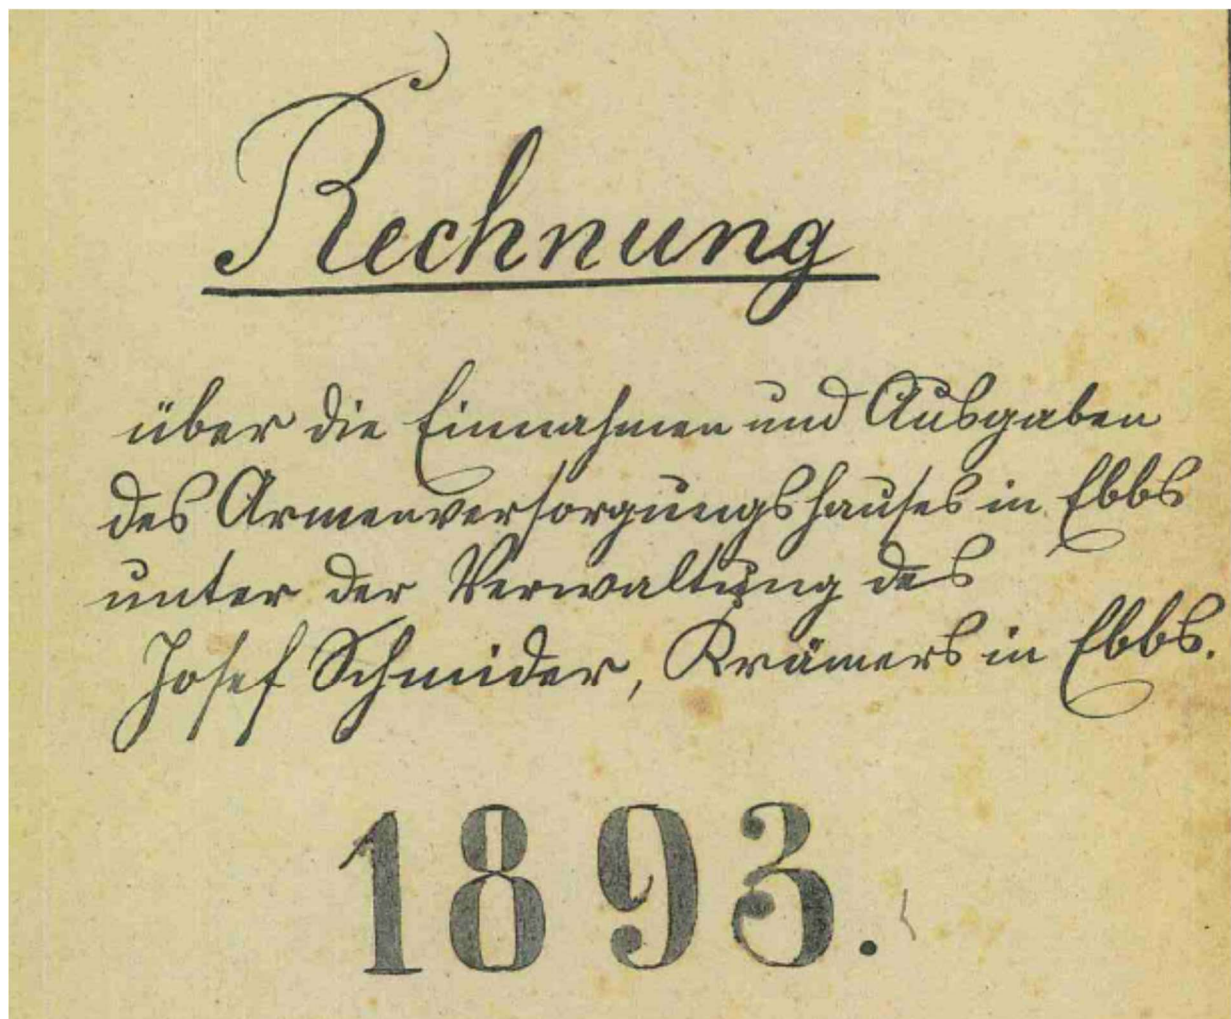 Rechnung
über die Einnahmen und Ausgaben
des Armenversorgungshauses in Ebbs
unter der Verwaltung des
Josef Schmider, Krämers in Ebbs.
1893.